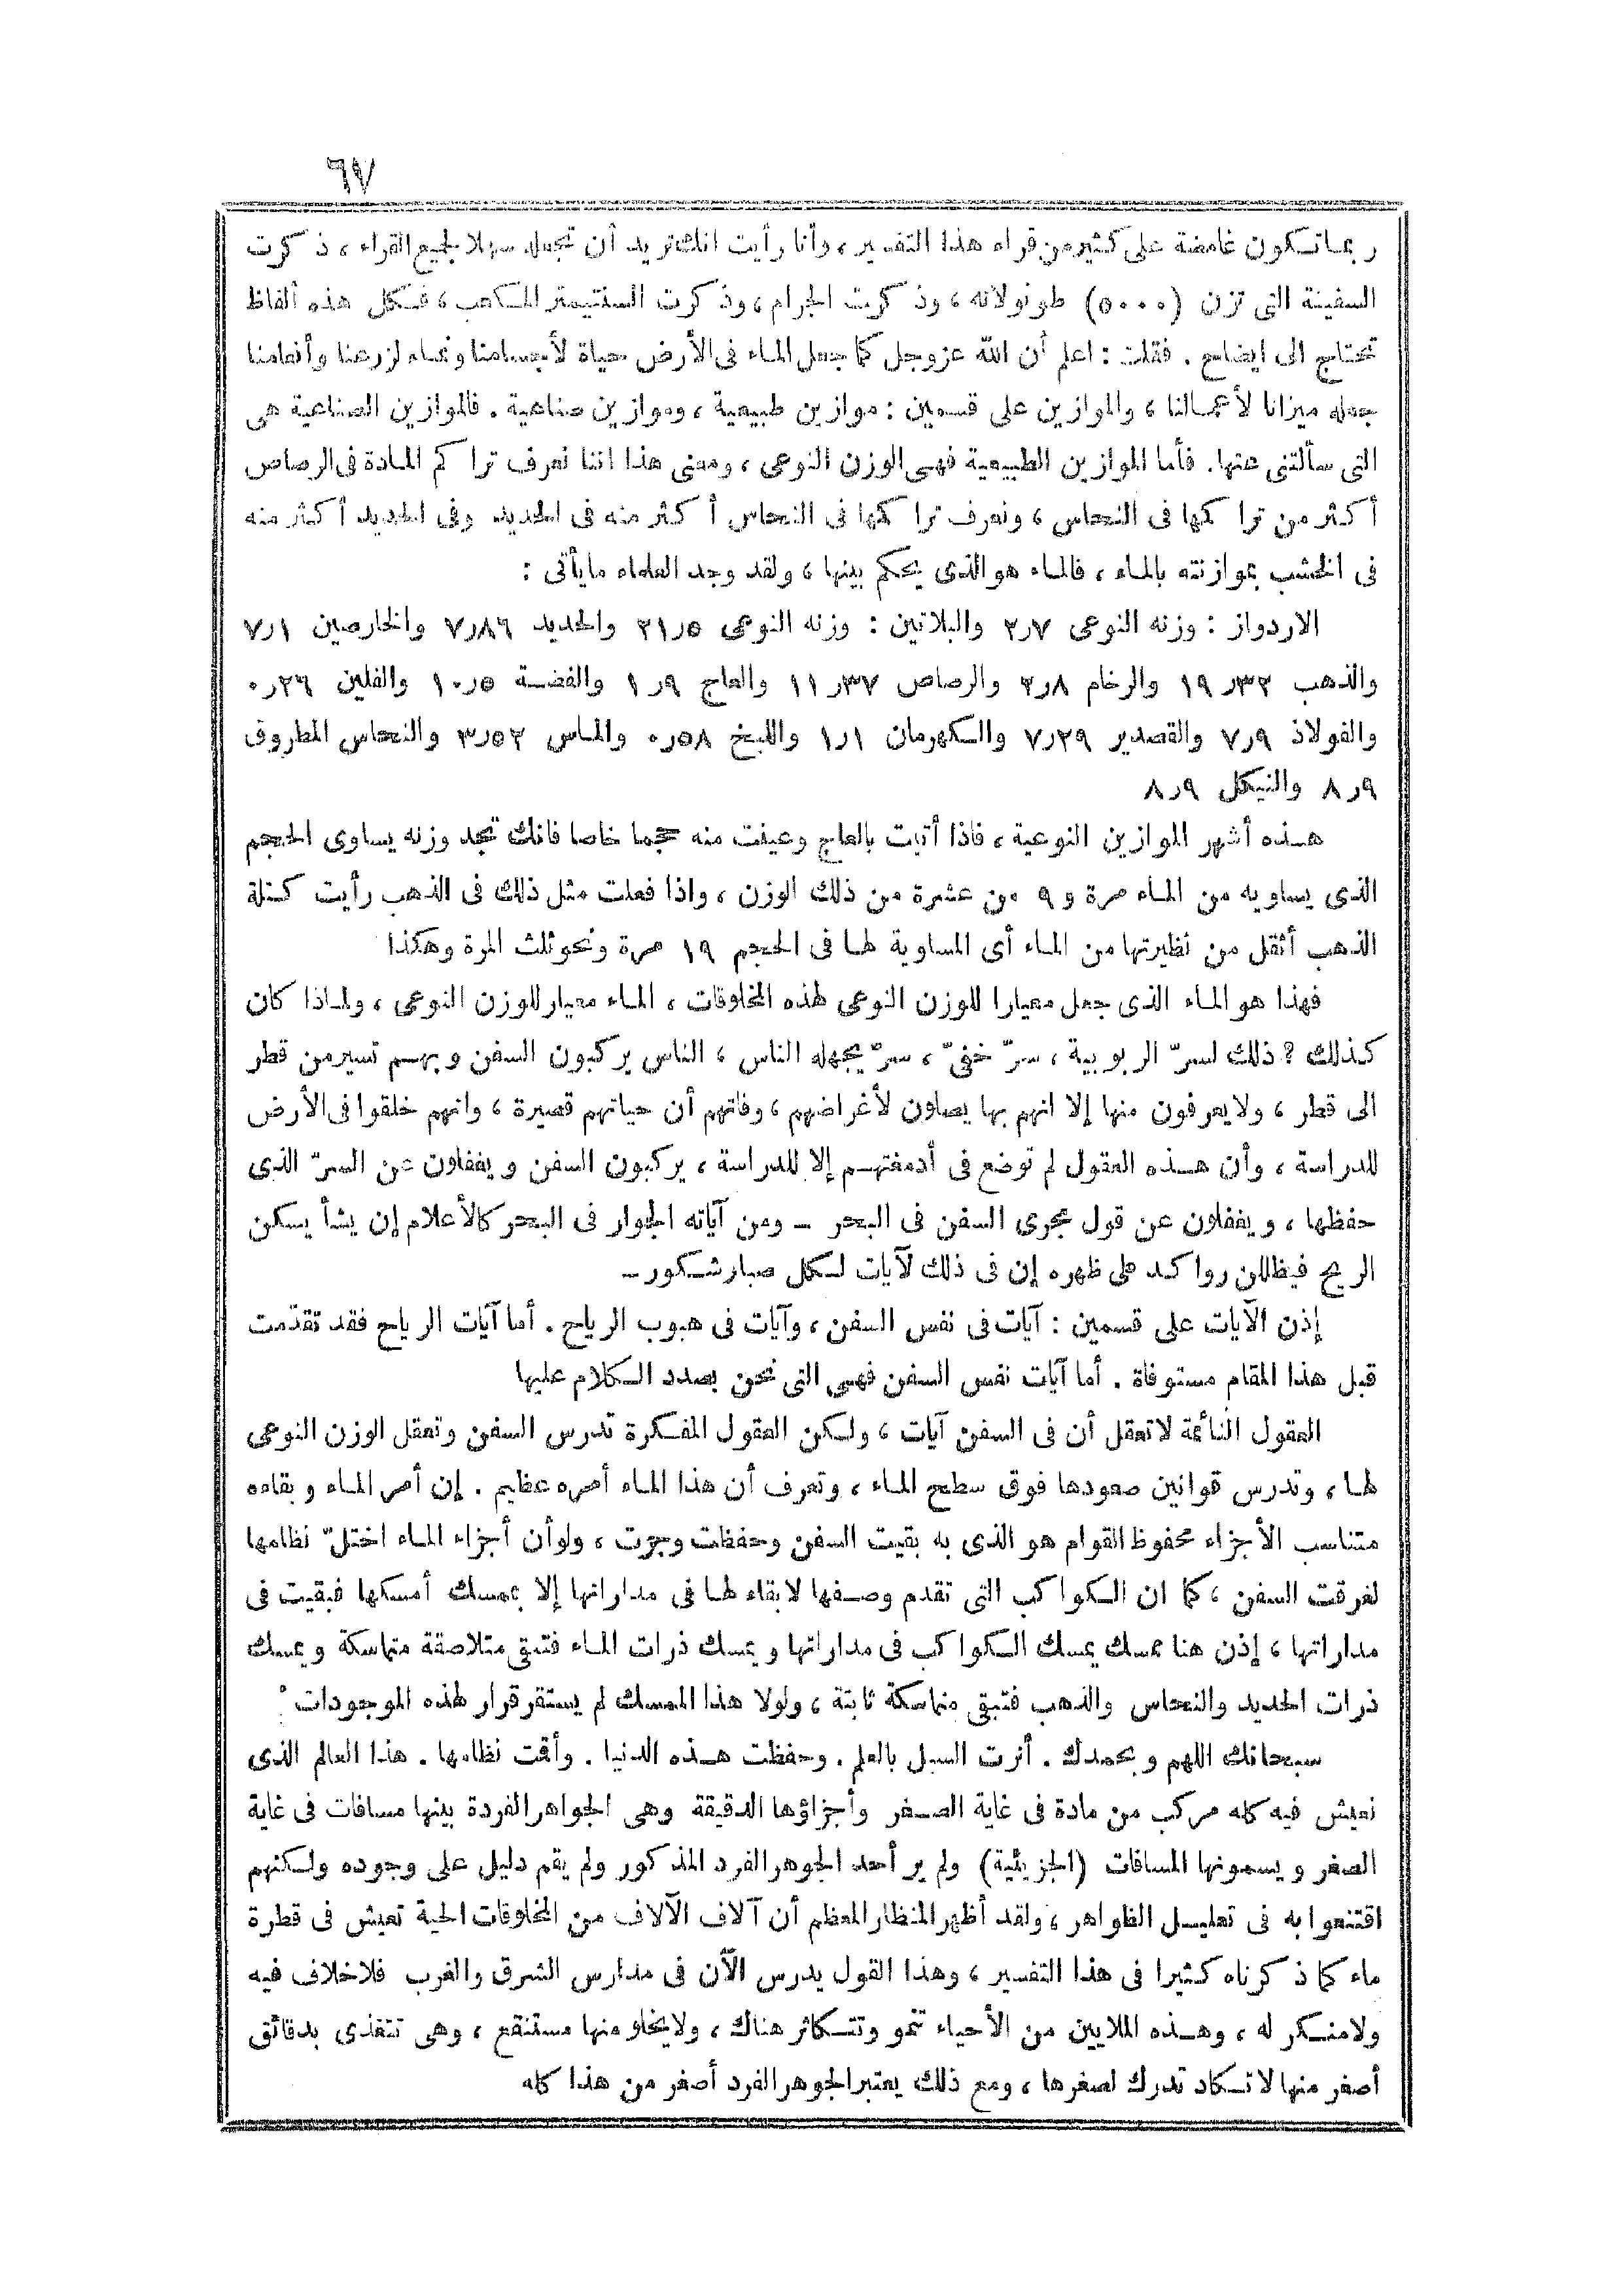 ٦٧
ربما تكون غامضة على كثير من قراء هذا التفسير، وأنا رأيت انك تريد أن تجعله سهلا لجميع القراء، ذكرت
السفينة التى تزن (٥٠٠٠) طونولاته، وذكرت الجرام، وذكرت السنتيمتر المكعب، فكل هذه ألفاظ
تحتاج الى ايضاح . فقلت : اعلم أن الله عز وجل كما جعل الماء فى الأرض حياة لأجسامنا ونماء لزرعنا وأنعامنا
جعله ميزانا لأعمالنا، والموازين على قسمين : موازين طبيعية، وموازين صناعية . فالموازين الصناعية هى
التى سألتنى عنها . فأما الموازين الطبيعية فهى الوزن النوعى، ومعنى هذا اننا نعرف تراكم المادة فى الرصاص
أكثر من تراكمها فى النحاس، ونعرف تراكمها فى النحاس أكثر منه فى الحديد وفى الحديد أكثر منه
فى الخشب بموازنته بالماء، فالماء هو الذى يحكم بينها، ولقد وجد العلماء ما يأتى :
الاردواز : وزنه النوعى ٢٫٧ والبلاتين : وزنه النوعى ٢١٫٥ والحديد ٧٫٨٦ والخارصين ٧٫١
والذهب ١٩٫٣٢ والرخام ٢٫٨ والرصاص ١١٫٣٧ والعاج ١٫٩ والفضة ١٠٫٥ والفلين ٠٫٢٦
والفولاذ ٧٫٩ والقصدير ٧٫٢٩ والكهرمان ١٫١ واللبخ ٠٫٥٨ والماس ٣٫٥٢ والنحاس المطروق
٨٫٩ والنيكل ٨٫٩
هذه أشهر الموازين النوعية، فاذا أتيت بالعاج وعينت منه حجما خاصا فانك تجد وزنه يساوى الحجم
الذى يساويه من الماء مرة و ٩ من عشرة من ذلك الوزن، واذا فعلت مثل ذلك فى الذهب رأيت كتلة
الذهب أثقل من نظيرتها من الماء أى المساوية لها فى الحجم ١٩ مرة ونحو ثلث المرة وهكذا
فهذا هو الماء الذى جعل معيارا للوزن النوعى لهذه المخلوقات، الماء معيار للوزن النوعى، ولماذا كان
كذلك ؟ ذلك لسرّ الربوبية، سرّ خفىّ، سرّ يجهله الناس، الناس يركبون السفن وبهم تسير من قطر
الى قطر، ولا يعرفون منها إلا انهم بها يصلون لأغراضهم، وفاتهم أن حياتهم قصيرة، وانهم خلقوا فى الأرض
للدراسة، وأن هذه العقول لم توضع فى أدمغتهم إلا للدراسة، يركبون السفن ويغفلون عن السرّ الذى
حفظها، ويغفلون عن قول مجرى السفن فى البحر - ومن آياته الجوار فى البحر كالأعلام إن يشأ يسكن
الريح فيظللن رواكد على ظهره إن فى ذلك لآيات لكل صبار شكور -
إذن الآيات على قسمين : آيات فى نفس السفن، وآيات فى هبوب الرياح . أما آيات الرياح فقد تقدّمت
قبل هذا المقام مستوفاة . أما آيات نفس السفن فهى التى نحن بصدد الكلام عليها
العقول النائمة لا تعقل أن فى السفن آيات، ولكن العقول المفكرة تدرس السفن وتعقل الوزن النوعى
لها، وتدرس قوانين صعودها فوق سطح الماء، وتعرف أن هذا الماء أمره عظيم . إن أمر الماء وبقاءه
متناسب الأجزاء محفوظ القوام هو الذى به بقيت السفن وحفظت وجرت، ولو أن أجزاء الماء اختلّ نظامها
لغرقت السفن، كما ان الكواكب التى تقدم وصفها لا بقاء لها فى مداراتها إلا بممسك أمسكها فبقيت فى
مداراتها، إذن هنا ممسك يمسك الكواكب فى مداراتها ويمسك ذرات الماء فتبقى متلاصقة متماسكة ويمسك
ذرات الحديد والنحاس والذهب فتبقى متماسكة ثابتة، ولولا هذا الممسك لم يستقر قرار لهذه الموجودات
سبحانك اللهم وبحمدك . أنرت السبل بالعلم . وحفظت هذه الدنيا . وأقت نظامها . هذا العالم الذى
نعيش فيه كله مركب من مادة فى غاية الصغر وأجزاؤها الدقيقة وهى الجواهر الفردة بينها مسافات فى غاية
الصغر ويسمونها المسافات (الجزيئية) ولم ير أحد الجوهر الفرد المذكور ولم يقم دليل على وجوده ولكنهم
اقتنعوا به فى تعليل الظواهر، ولقد أظهر المنظار المعظم أن آلاف الآلاف من المخلوقات الحية تعيش فى قطرة
ماء كما ذكرناه كثيرا فى هذا التفسير، وهذا القول يدرس الآن فى مدارس الشرق والغرب فلا خلاف فيه
ولا منكر له، وهذه الملايين من الأحياء تنمو وتتكاثر هناك، ولا يخلو منها مستنقع، وهى تتغذى بدقائق
أصغر منها لا تكاد تدرك لصغرها، ومع ذلك يعتبر الجوهر الفرد أصغر من هذا كله